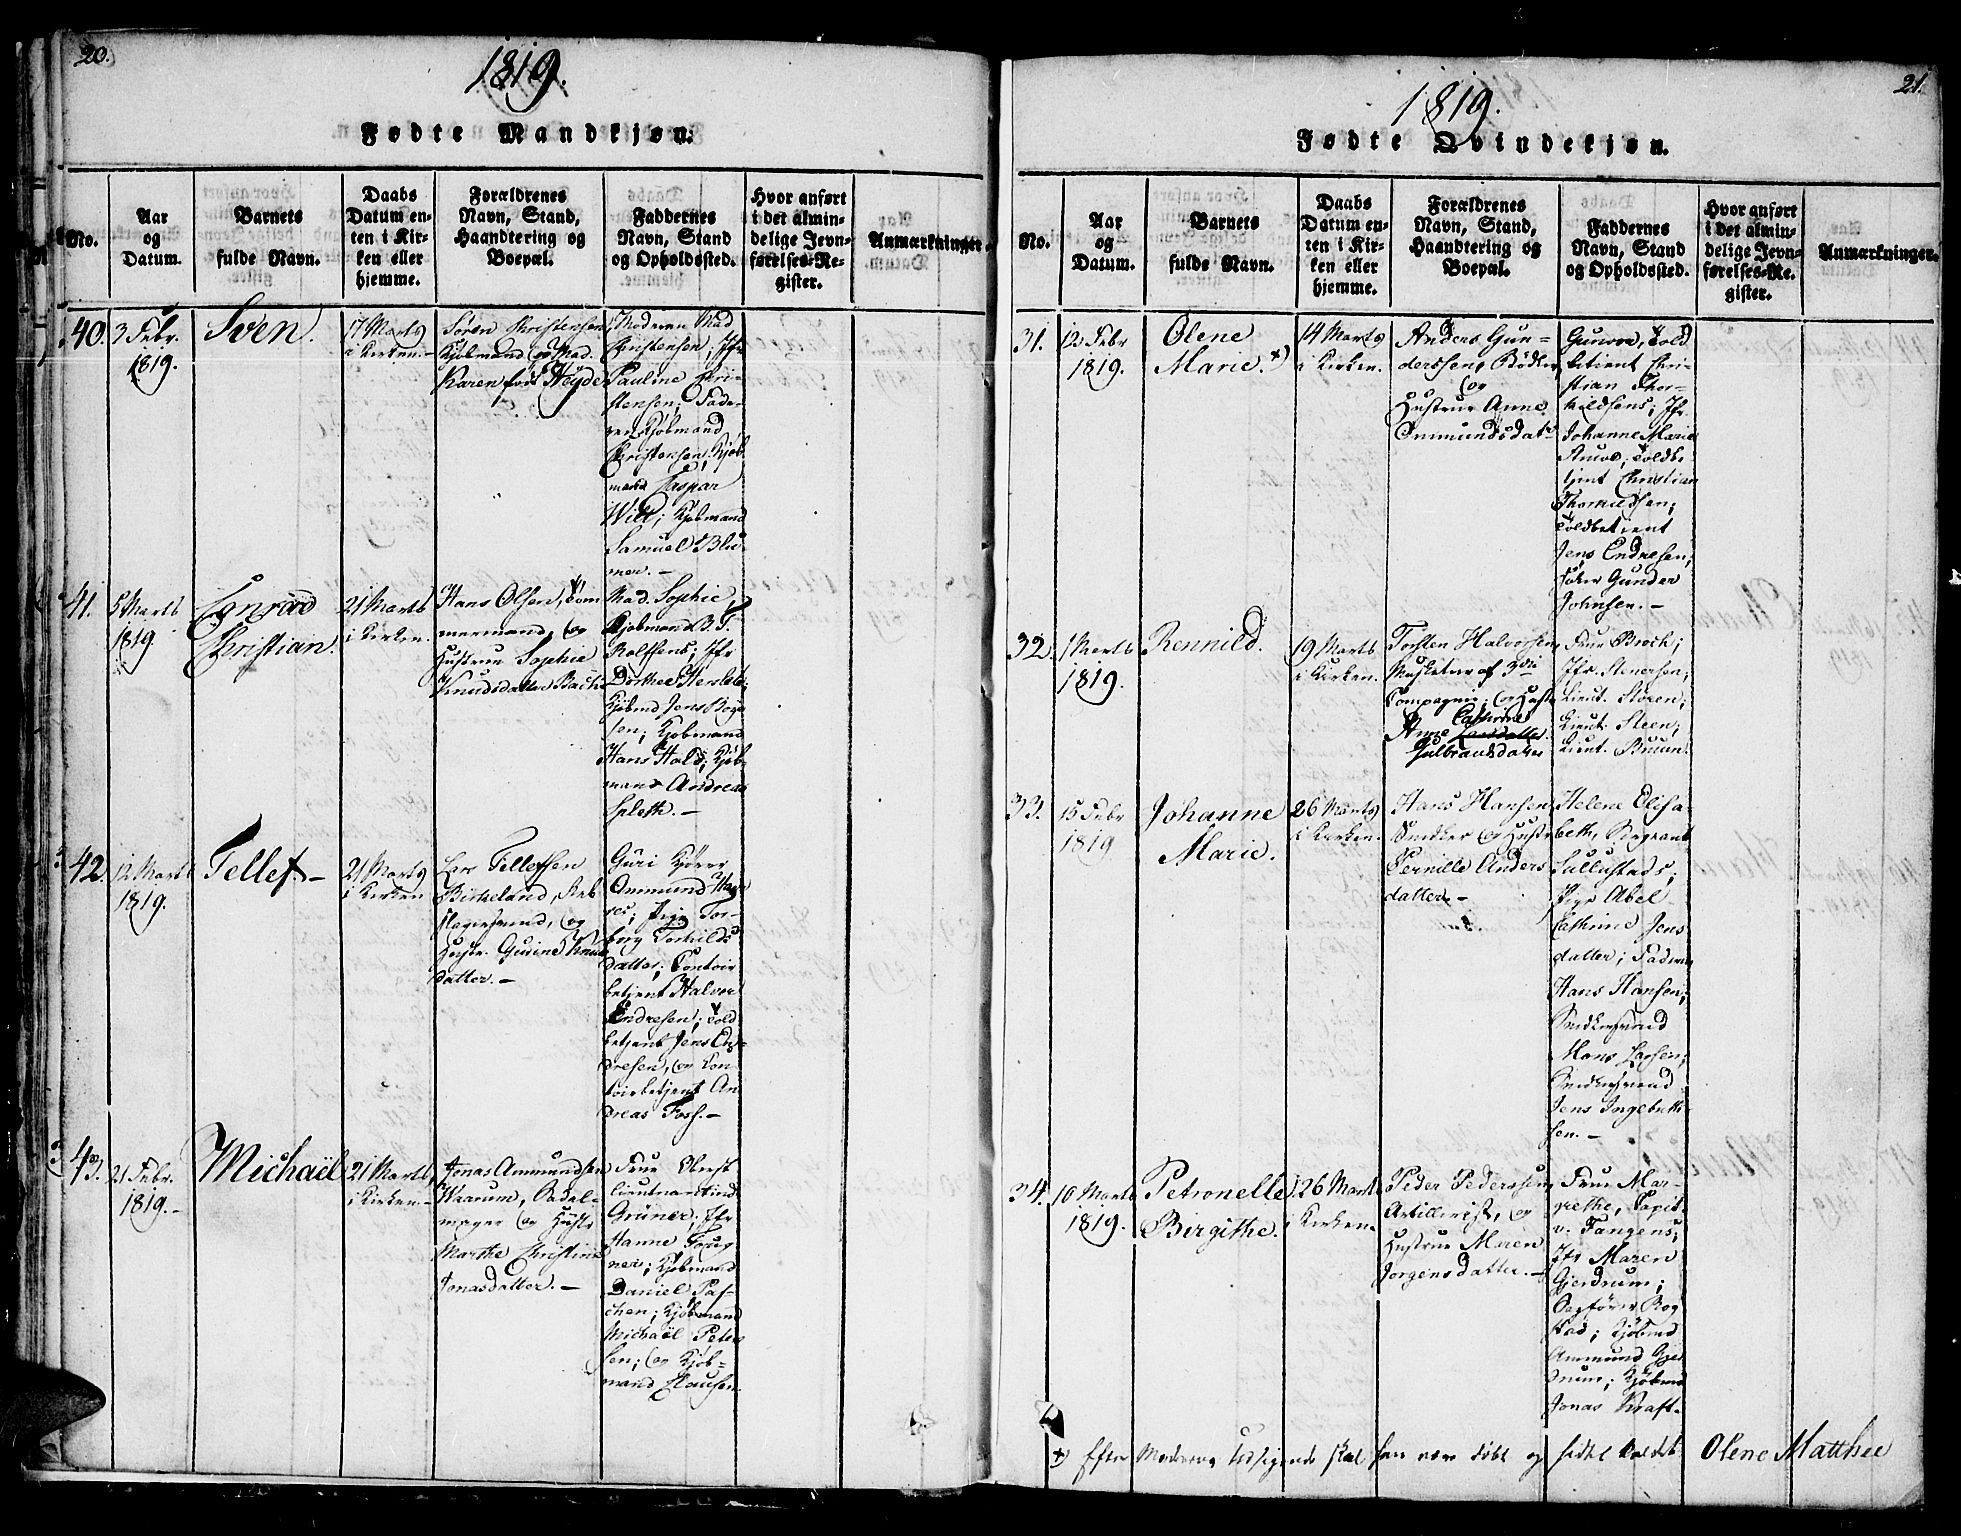 20.
1819.
Fødte Mandkjøn.
No.
Aar
og
Datum.
Barnets
fulde Navn.
Daabs
Datum en-
ten i Kir-
ken eller
hjemme.
Forældrenes
Navn, Stand,
Haandtering og
Boepæl.
Faddernes
Navn, Stand
og Opholdssted.
Hvor anført
i det almin-
delige Jevn-
førelses-Re-
gister.
Anmærkninger.
40.
3 Febr.
1819.
Sven.
17 Marts
i Kirken.-
Sören Christensen,
Kjöbmand og Mad.
Karen föd Heyde
Moderen Mad
Christensen; Jfr
Pauline Chri-
stensen; Fade-
ren Kjöbmand
Christensen; Kjöb
mand Caspar
Will; Kjöbmand
Samuel Blu
mer.-
41.
5 Marts
1819.
Conrad
Christian.
21 Marts
i Kirken.
Hans Olsen, Töm
mermand, og
Hustrue Sophie
Knudsdatter Bache
Mad. Sophie,
Kjobmand B. T.
Rolfsens; Jfr
Dorthee Hersleb;
Kjöbmd Jens Boye
sen; Kjobmand
Hans Hald; Kjöb-
mand Andreas
Spleth.-
42.
12 Marts
1819.
Tellef-
21 Marts
i Kirken
Lars Tellefsen
Birkeland, Arb
og
Hustr. Gurine Knuds
datter.-
Guri
Ammund
Pige Tor-
borg Torkilds
datter; Contoir
betjent Halvor
Endresen; Told
betjent Jens En-
dresen, og Con-
toirbetjent An
dreas Foss.-
43.
21 Febr.
1819.-
Michaël
21 Marts
i Kirken-
Jonas Ammundsen
Waarum, Sadel-
mager og Hustr
Marthe Christine
Jonasdatter.-
Frue Oberst
lieutnantind
Grüner; Jfr
Hanne Foug
ner; Kjöbmand
Daniel Pas-
chen; Kjöbmand
Michaël Peter
sen; og Kjöb-
mand Clausen.
21.
1819.
Fødte Qvindekjøn.
No.
Aar
og
Datum.
Barnets
fulde Navn.
Daabs
Datum en-
ten i Kir-
ken eller
hjemme.
Forældrenes
Navn, Stand,
Haandtering og
Boepæl.
Faddernes
Navn, Stand
og Opholdssted.
Hvor anført
i det almin-
delige Jevn-
førelses-Re-
gister.
Anmærkninger.
31.
12 Febr
1819.
Olene
Marie. +)
14 Marts
i Kirken.
Anders Gun-
derssen, Bödker
og
Hustrue Anne
Ommundsdatr
Gunvor, Told
betient Chri-
stian Thor-
kildsens; Jfr.
Johanne Marie
Told be-
tjent Christian
Thorkildsen;
Toldbetient
Jens Endresen;
Gunder
Johnsen.-
32.
1 Marts
1819.
Rennild.
19 Marts
i Kirken.
Torsten Halvorsen
Musketeer af 3die
Compagnie, og Hustr
Anne Cathrine
Gulbrandsdatter
Frue Brock;
Jfr. Stenersen;
Lieut. Stören;
Lieut. Steen;
Lieut. Bruun.
33.
15 Febr
1819
Johanne
Marie.
26 Marts
i Kirken.
Hans Hansen
Snedker og Hustr
Pernille Anders
datter.-
Helene Elisa-
beth, Sergeant
Sullustads;
Pige Abel
Cathrine Jens
datter; Faderen
Hans Hansen;
Snedkersvend
Mons Larsen;
Snedkersvend
Jens Ingebrett-
sen.-
34.
10 Marts
1819.
Petronelle
Birgithe.
26 Marts
i Kirken.
Peder Pederssen
Artillerist, og
Hustrue Maren
Jörgensdatter.-
Frue Mar-
grethe, Capit.
v. Fangens;
Jfr Maren
Gjerdrum;
Sagförer Rog
stad; Kjöbmd
Ammund Gjer
drum; Kjöbmd
Jonas Kraft-
+) Efter Moderens Udsigende skal hun være döbt og hedte kaldet Olene Matthee